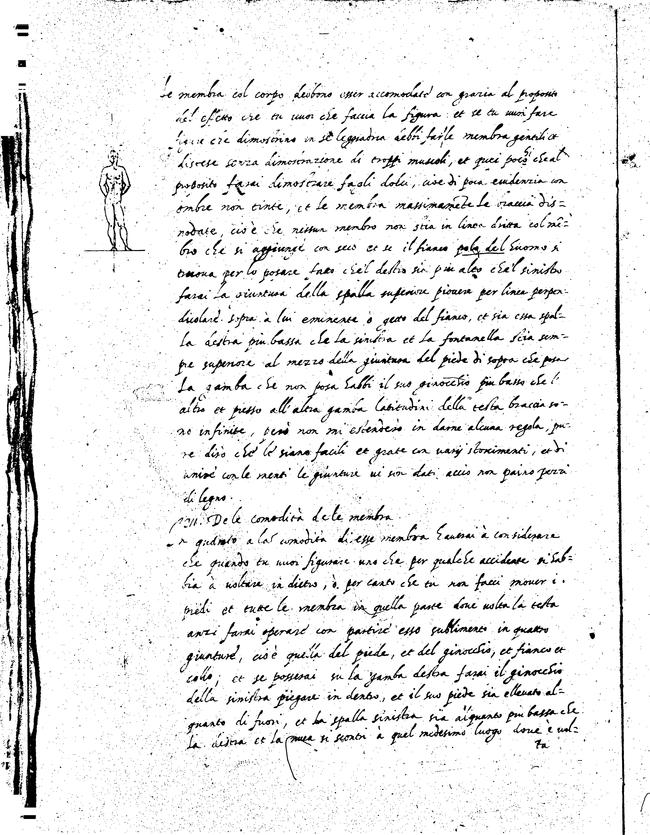 Le membra col corpo debbono esser accomodate con gratia al proposito
del effetto che tu vuoi che faccia la figura. et se tu vuoi fare
figure che dimostrino in se leggiadria debbi farle membra gentili et
distese senza dimostratione di troppi muscoli, et quei pochi che al
proposito farai dimostrare fagli dolci, cioe di poca evidenzia con
ombre non tinte, et le membra massimamente le braccia dis=
nodate, cio è che nessun membro non stia in linea dritta col mē=
bro che si aggiunge con seco et se il fianco polo del huomo si
truova per lo posare fatto che'l destro sia piu alto che'l sinistro
farai la giuntura della spalla superiore piovere per linea perpen=
diculare sopra à lui eminente ò getto del fianco, et sia essa spal=
la destra piu bassa che la sinistra et la fontanella stia sem=
pre superiore al mezzo della giuntura del piede di sopra che posa
La gamba che non posa habbi il suo ginocchio piu basso che l'
altro et presso all'altra gamba latitudini della testa braccia so=
no infinite, però non mi estenderò in darne alcuna regola, pu=
re dirò che le siano facili et grate con varij storcimenti, et di
unire con le menti le giunture ui sin dati acciò non paino pezzi
di legno.
De le comodità de le membra
n quanto a la comodità di esse membra haverai à considerare
che quando tu vuoi figurare uno che per qualche accidente si hab=
bia à voltare in dietro, ò per canto che tu non facci mover i
piedi et tutte le membra in quella parte dove volta la testa
anzi farai operare con partire esso sublimento in quattro
giunture, cio è quella del piede, et del ginocchio, et fianco et
collo, et se poserai su la gamba destra farai il ginocchio
della sinistra piegare in dentro, et il suo piede sia ellevato al=
quanto di fuori, et la spalla sinistra sia alquanto piu bassa che
la destra et la nuca si scontri à quel medesimo luogo dove è vol=
ta